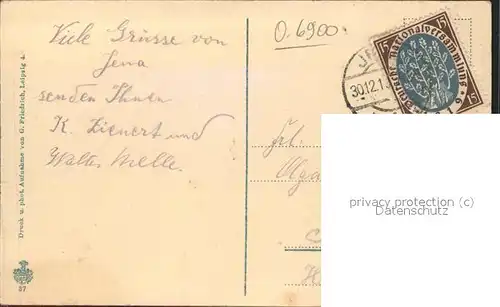 Viele Grüsse von
Jena
senden Ihnen
K. Lienert und
Walter Melle.
O. 6900.
JE
30.12.1
Deutsche Nationalversammlung 1919
15
15
Frl.
Olga
privacy protection (c)
Datenschutz
Druck u. phot. Aufnahme von G. Friedrich, Leipzig 4.
37